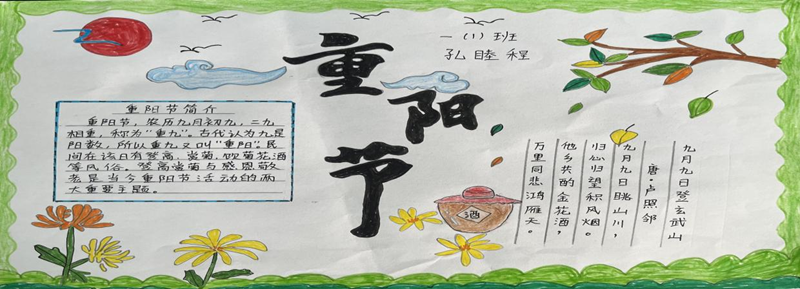 重阳节
一(1)班
孔睦程
重阳节简介
重阳节,农历九月初九,二九
相重,称为"重九"。古代认为九是
阳数,所以重九又叫"重阳"。民
间在该日有登高,赏菊,饮菊花酒
等风俗。登高赏菊与感恩敬
老是当今重阳节活动的两
大重要主题。
酒
九月九日登玄武山
唐·卢照邻
九月九日眺山川,
归心归望积风烟。
他乡共酌金花酒,
万里同悲鸿雁天。